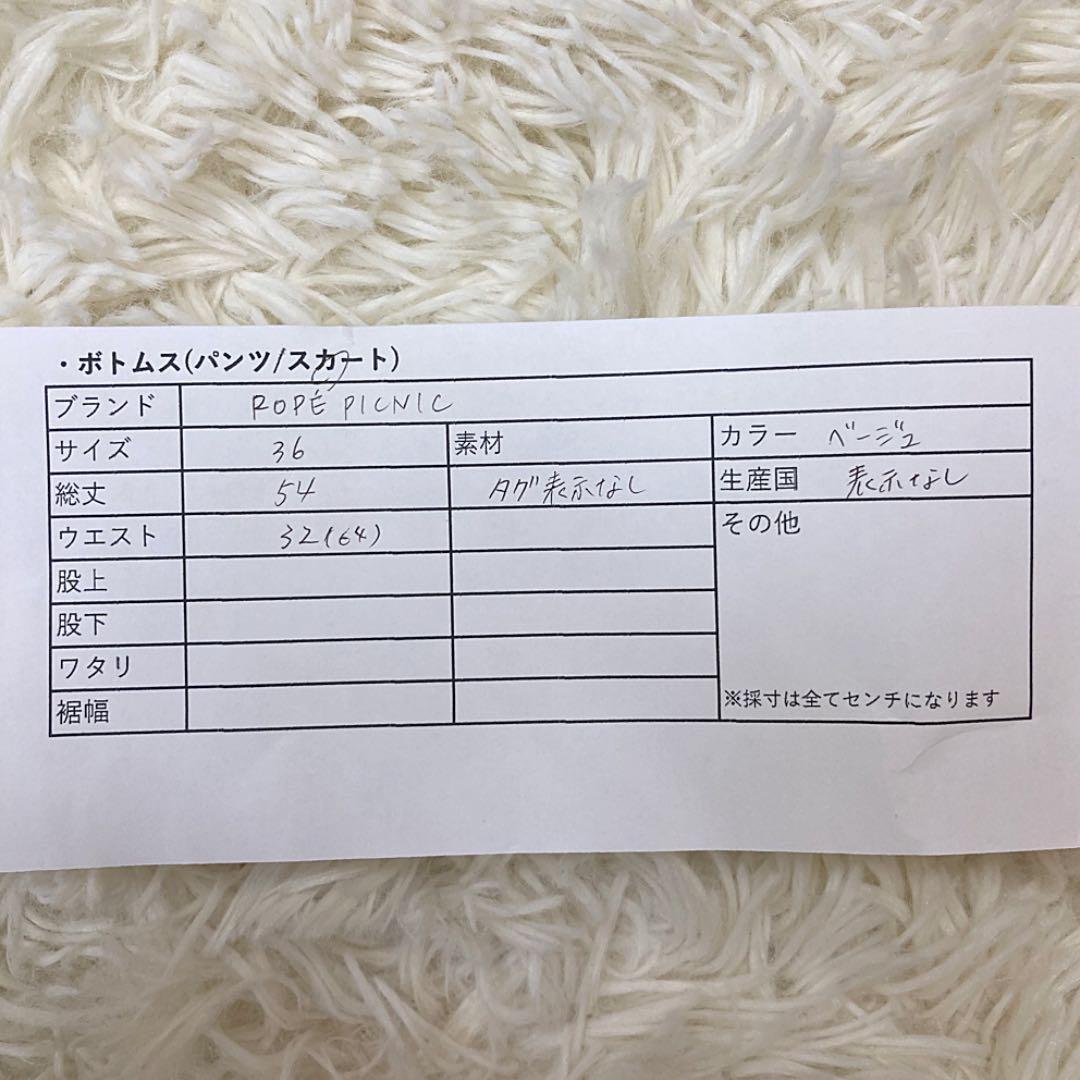 ・ボトムス(パンツ/スカート)
ブランド ROPÉ PICNIC
サイズ 36 素材 カラー ベージュ
総丈 54 タグ表示なし 生産国 表示なし
ウエスト 32(64) その他
股上
股下
ワタリ
裾幅 ※採寸は全てセンチになります